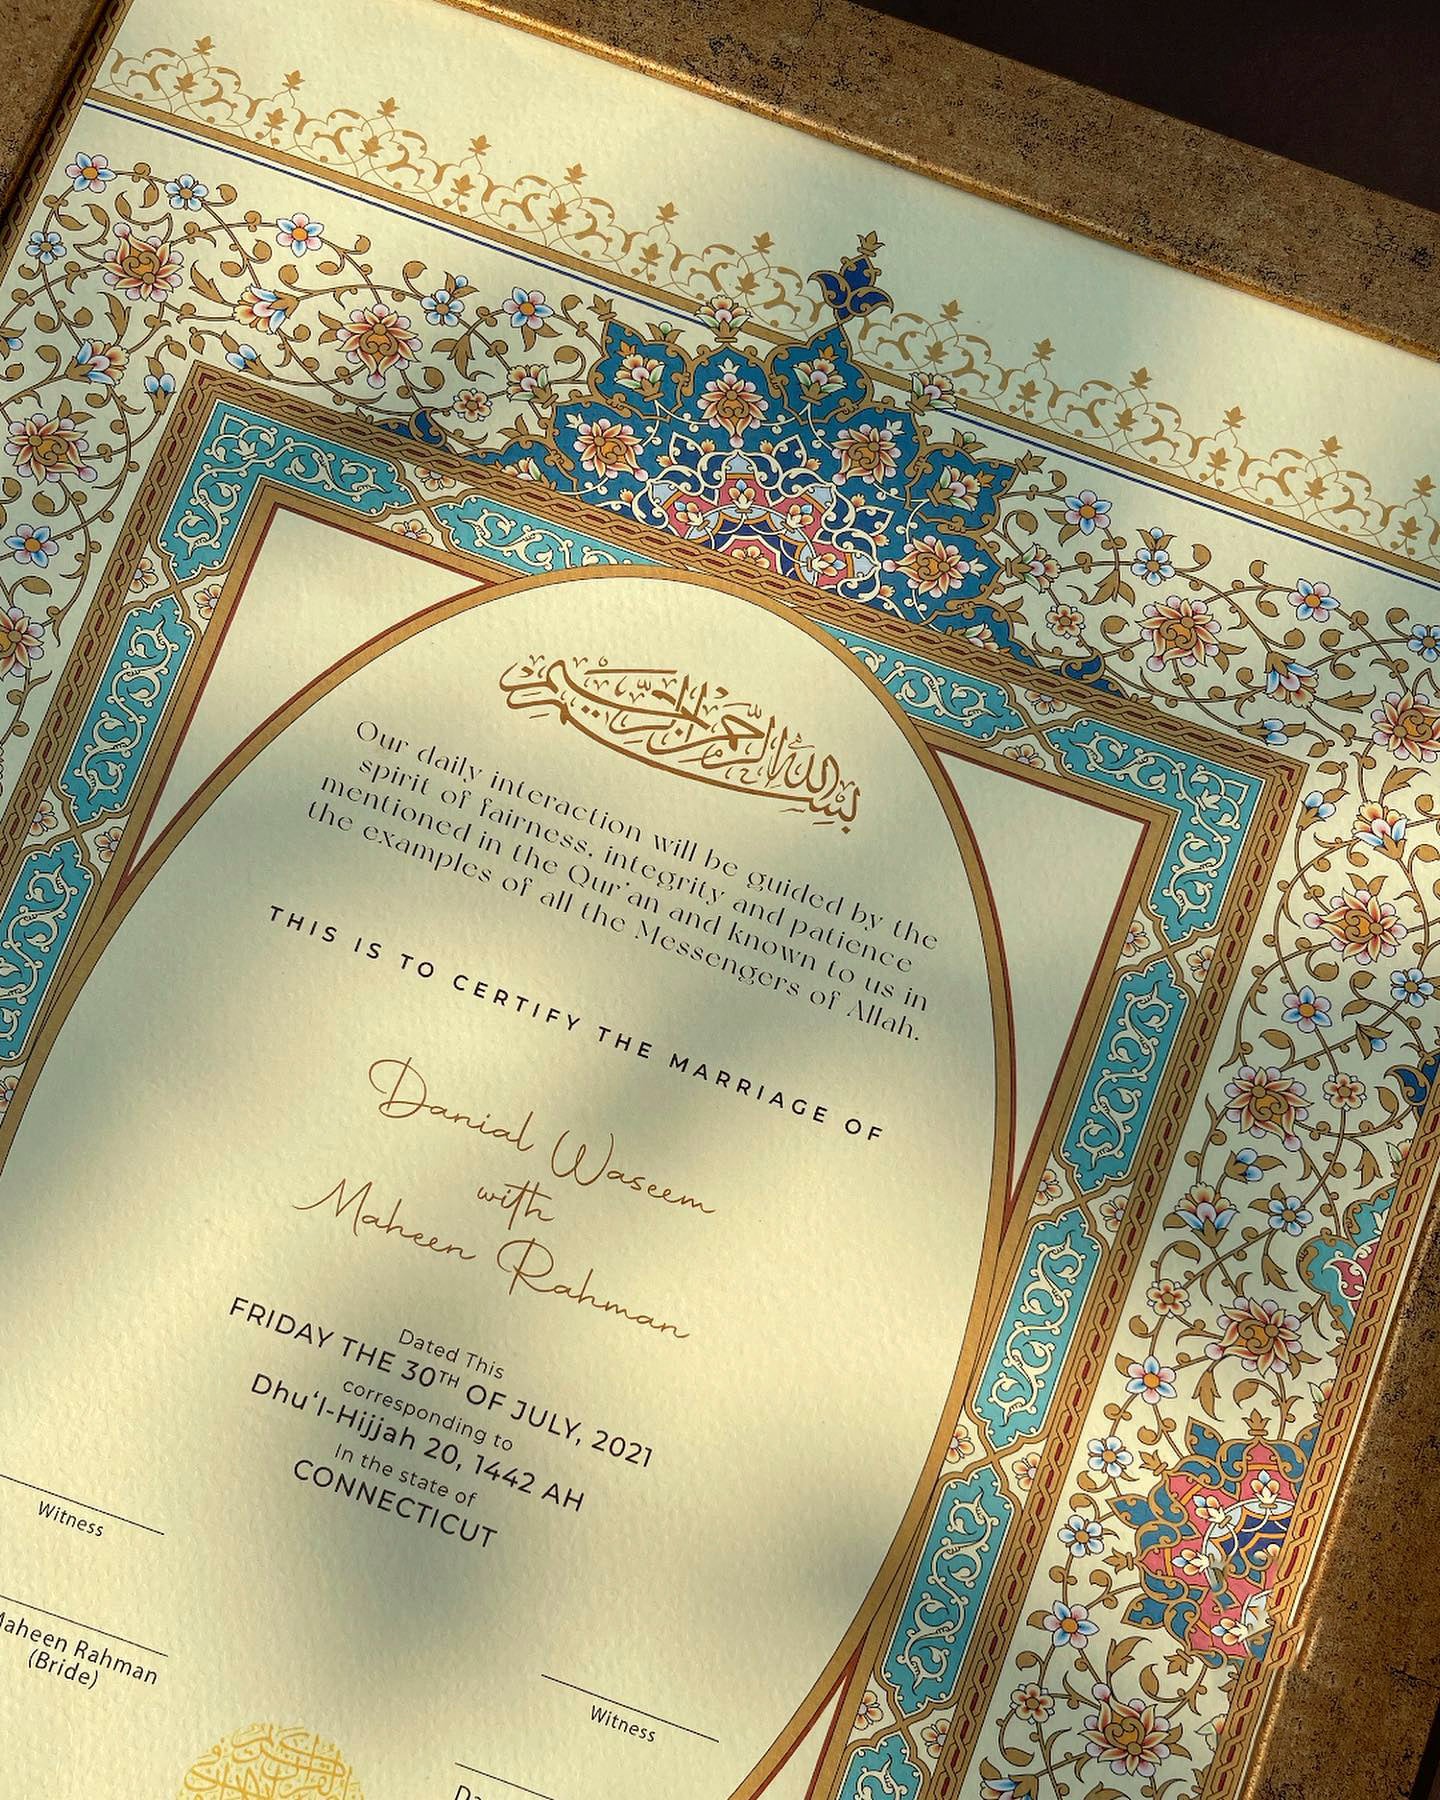 بسم الله الرحمن الرحيم
Our daily interaction will be guided by the
spirit of fairness, integrity and patience
mentioned in the Qur'an and known to us in
the examples of all the Messengers of Allah.
THIS IS TO CERTIFY THE MARRIAGE OF
Danial Waseem
with
Maheen Rahman
Dated This
FRIDAY THE 30TH OF JULY, 2021
corresponding to
Dhu‘l-Hijjah 20, 1442 AH
In the state of
CONNECTICUT
Witness
Maheen Rahman
(Bride)
Witness